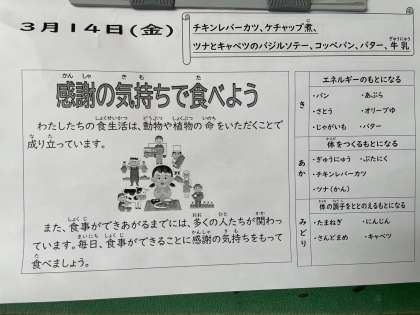 3月14日(金)
チキンレバーカツ、ケチャップ煮、
ツナとキャベツのバジルソテー、コッペパン、バター、牛乳
感謝の気持ちで食べよう
わたしたちの食生活は、動物や植物の命をいただくことで
成り立っています。
また、食事ができあがるまでには、多くの人たちが関わっ
ています。毎日、食事ができることに感謝の気持ちをもって
食べましょう。
き
エネルギーのもとになる
・パン ・あぶら
・さとう ・オリーブゆ
・じゃがいも ・バター
あか
体をつくるもとになる
・ぎゅうにゅう ・ぶたにく
・チキンレバーカツ
・ツナ(かん)
みどり
体の調子をととのえるもとになる
・たまねぎ ・にんじん
・さんどまめ ・キャベツ